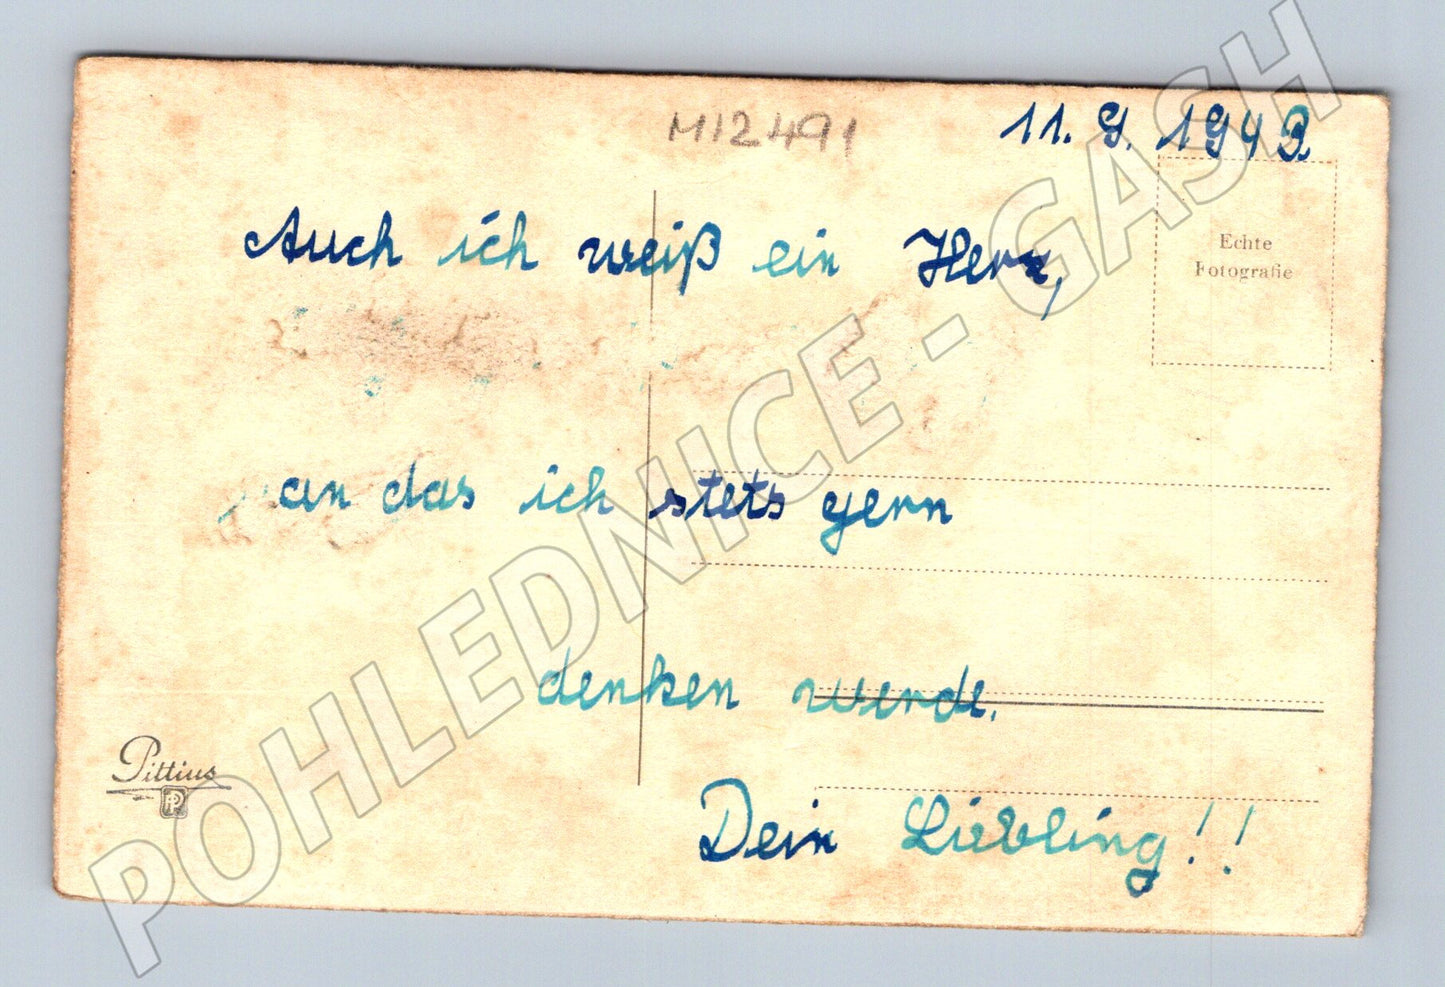 M12491
11. 9. 1943
Auch ich weiß ein Herz,
Echte
Fotografie
an das ich stets gern
denken werde.
Pittius
PP
Dein Liebling!!
POHLEDNICE - GASH